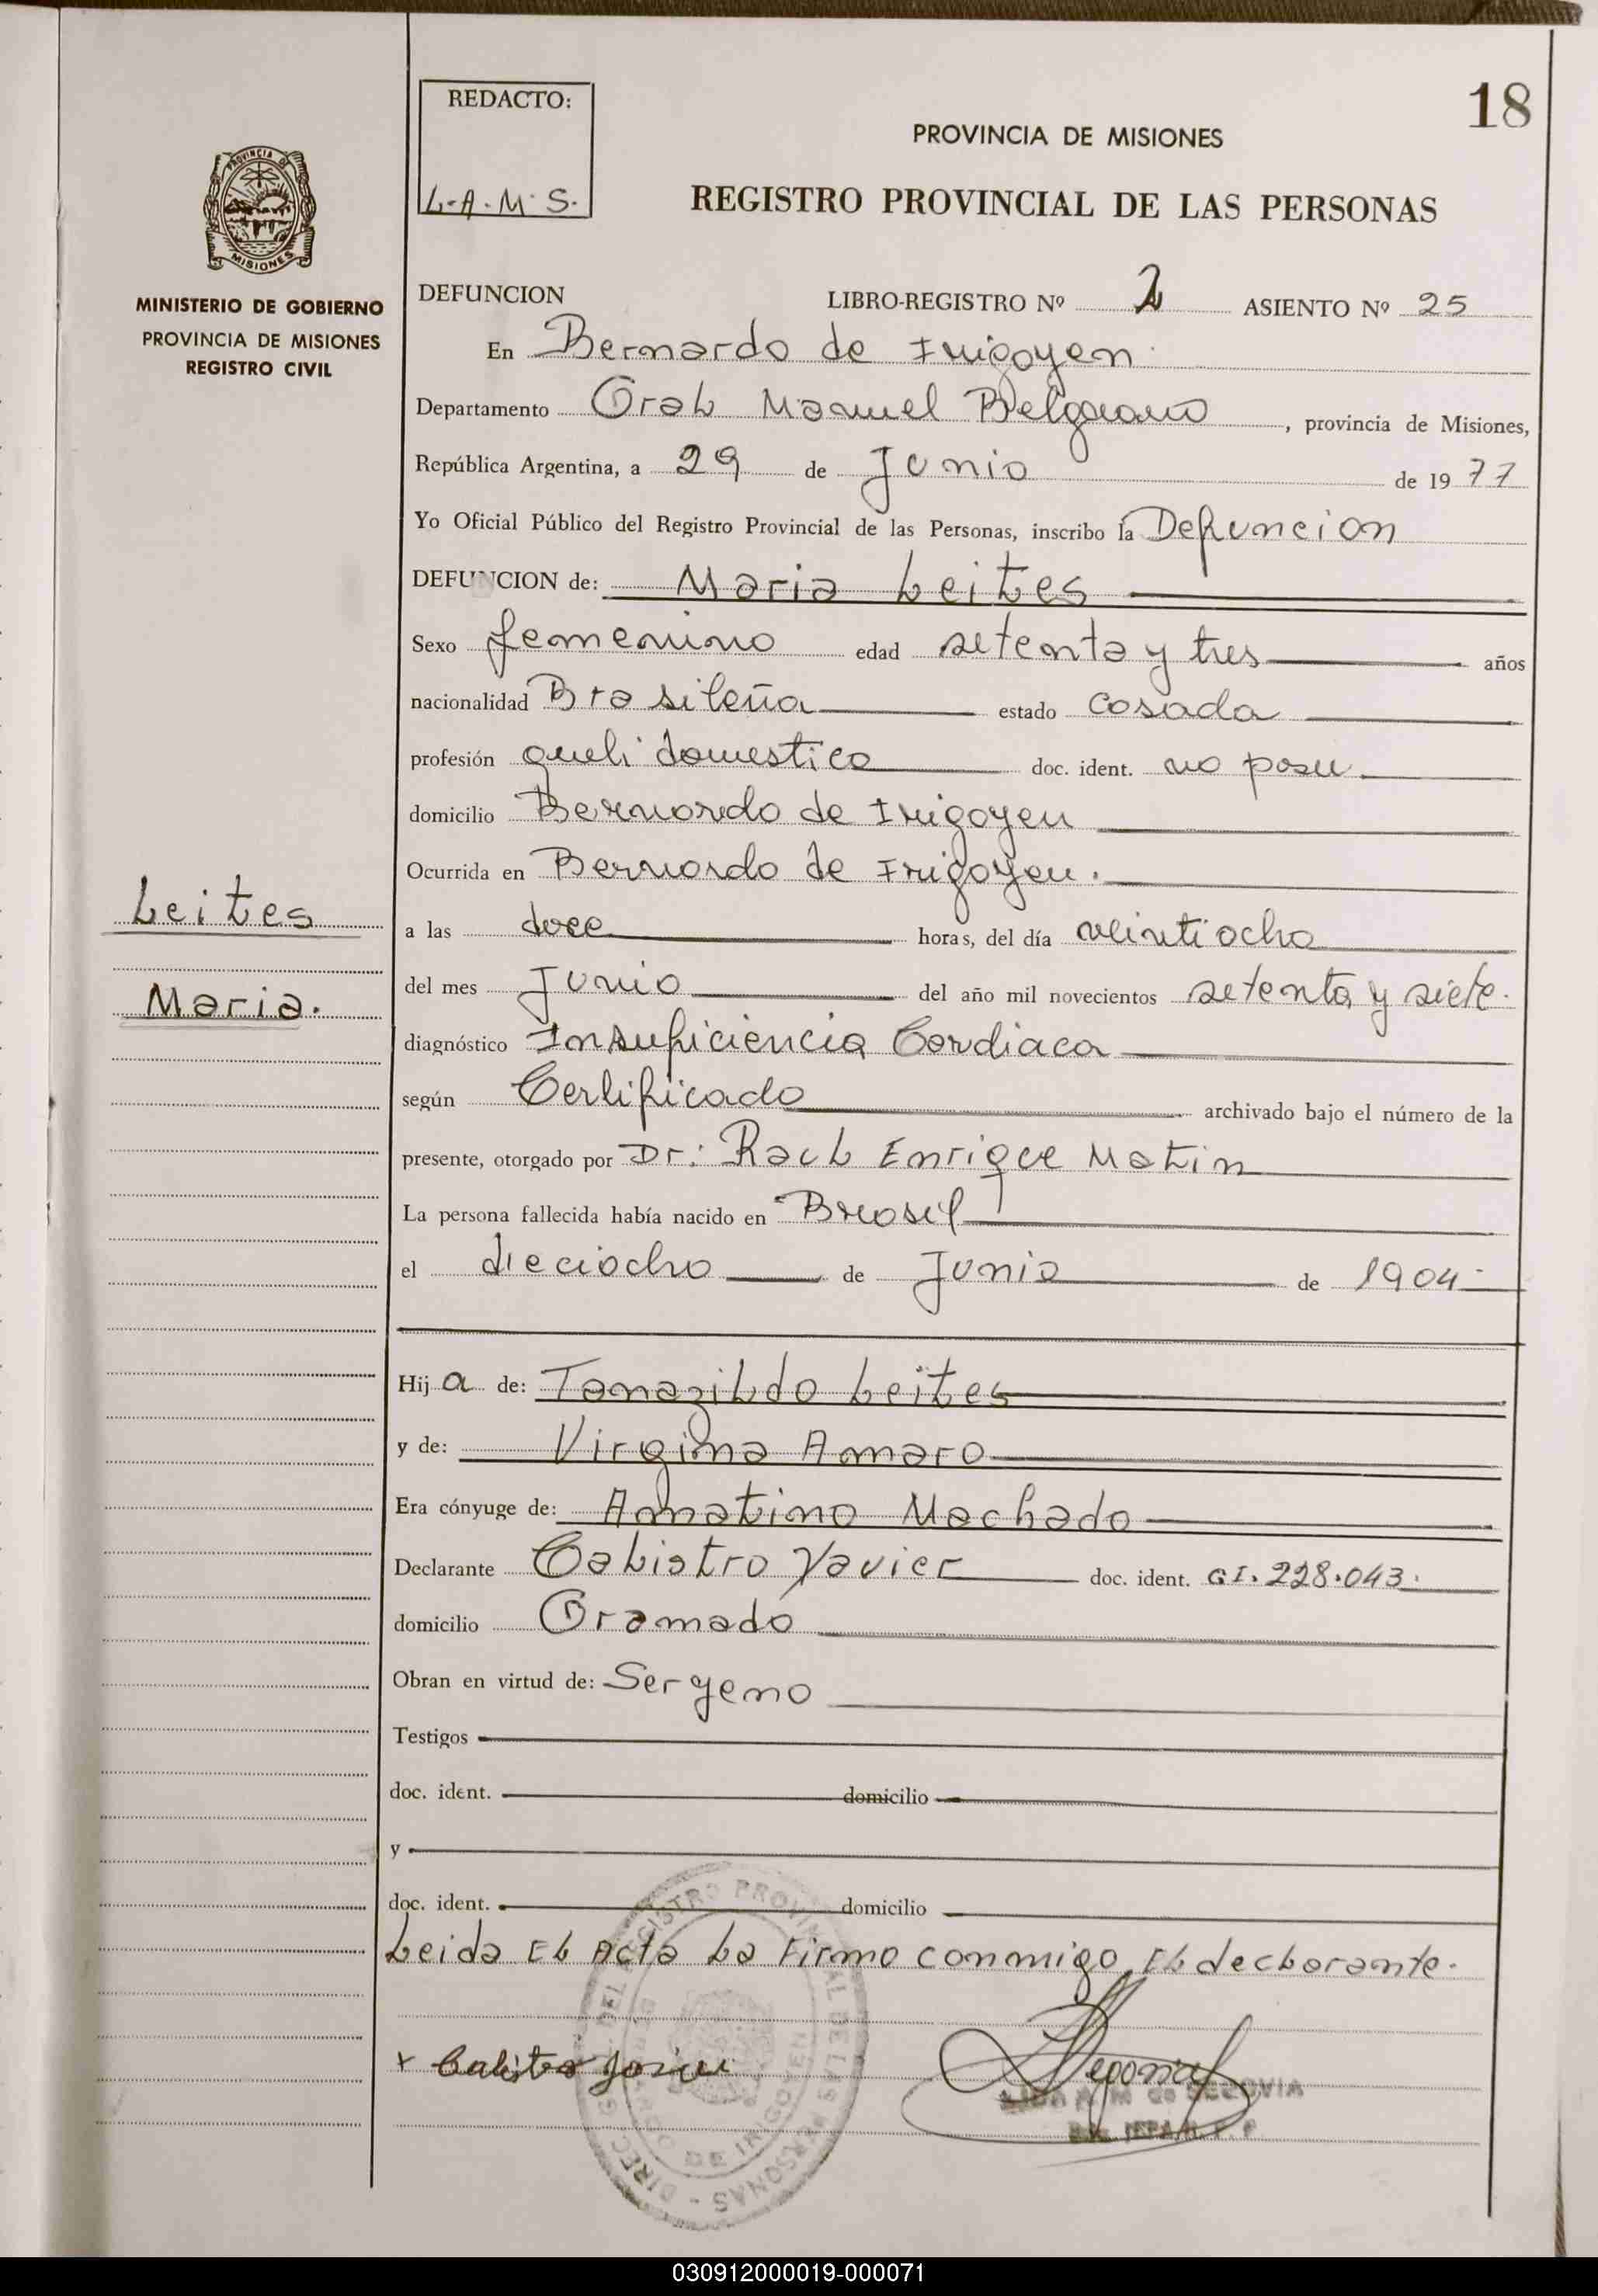 18
REDACTO:
L-A-M-S.
PROVINCIA DE MISIONES
REGISTRO PROVINCIAL DE LAS PERSONAS
PROVINCIA DE
MISIONES
MINISTERIO DE GOBIERNO
PROVINCIA DE MISIONES
REGISTRO CIVIL
DEFUNCION LIBRO-REGISTRO Nº 2 ASIENTO Nº 25
En Bernardo de Irigoyen.
Departamento Gral Manuel Belgrano, provincia de Misiones,
República Argentina, a 29 de Junio de 1977
Yo Oficial Público del Registro Provincial de las Personas, inscribo la Defuncion
DEFUNCION de: Maria Leites
Sexo femenino edad setenta y tres años
nacionalidad Brasileña estado casada
profesión queli domestico doc. ident. no pose
domicilio Bernardo de Irigoyen
Ocurrida en Bernardo de Irigoyen.
Leites
a las doce horas, del día veintiocho
Maria.
del mes Junio del año mil novecientos setenta y siete.
diagnóstico Insuficiencia Cardiaca
según Certificado archivado bajo el número de la
presente, otorgado por Dr: Raul Enrique Matin
La persona fallecida había nacido en Brasil
el dieciocho de Junio de 1904-
Hija de: Tamazildo Leites
y de: Virgima Amaro
Era cónyuge de: Amatimo Machado
Declarante Calistro Yavier doc. ident. GI. 228.043.
domicilio Gramado
Obran en virtud de: Ser yerno
Testigos
doc. ident. domicilio
y
doc. ident. domicilio
Leida El Acta La Firmo conmigo El declarante.
+ Calistro
DIREC. G. DEL REGISTRO PROVINCIAL DE LAS PERSONAS
BERNARDO DE IRIGOYEN
M. de SEGOVIA
030912000019-000071